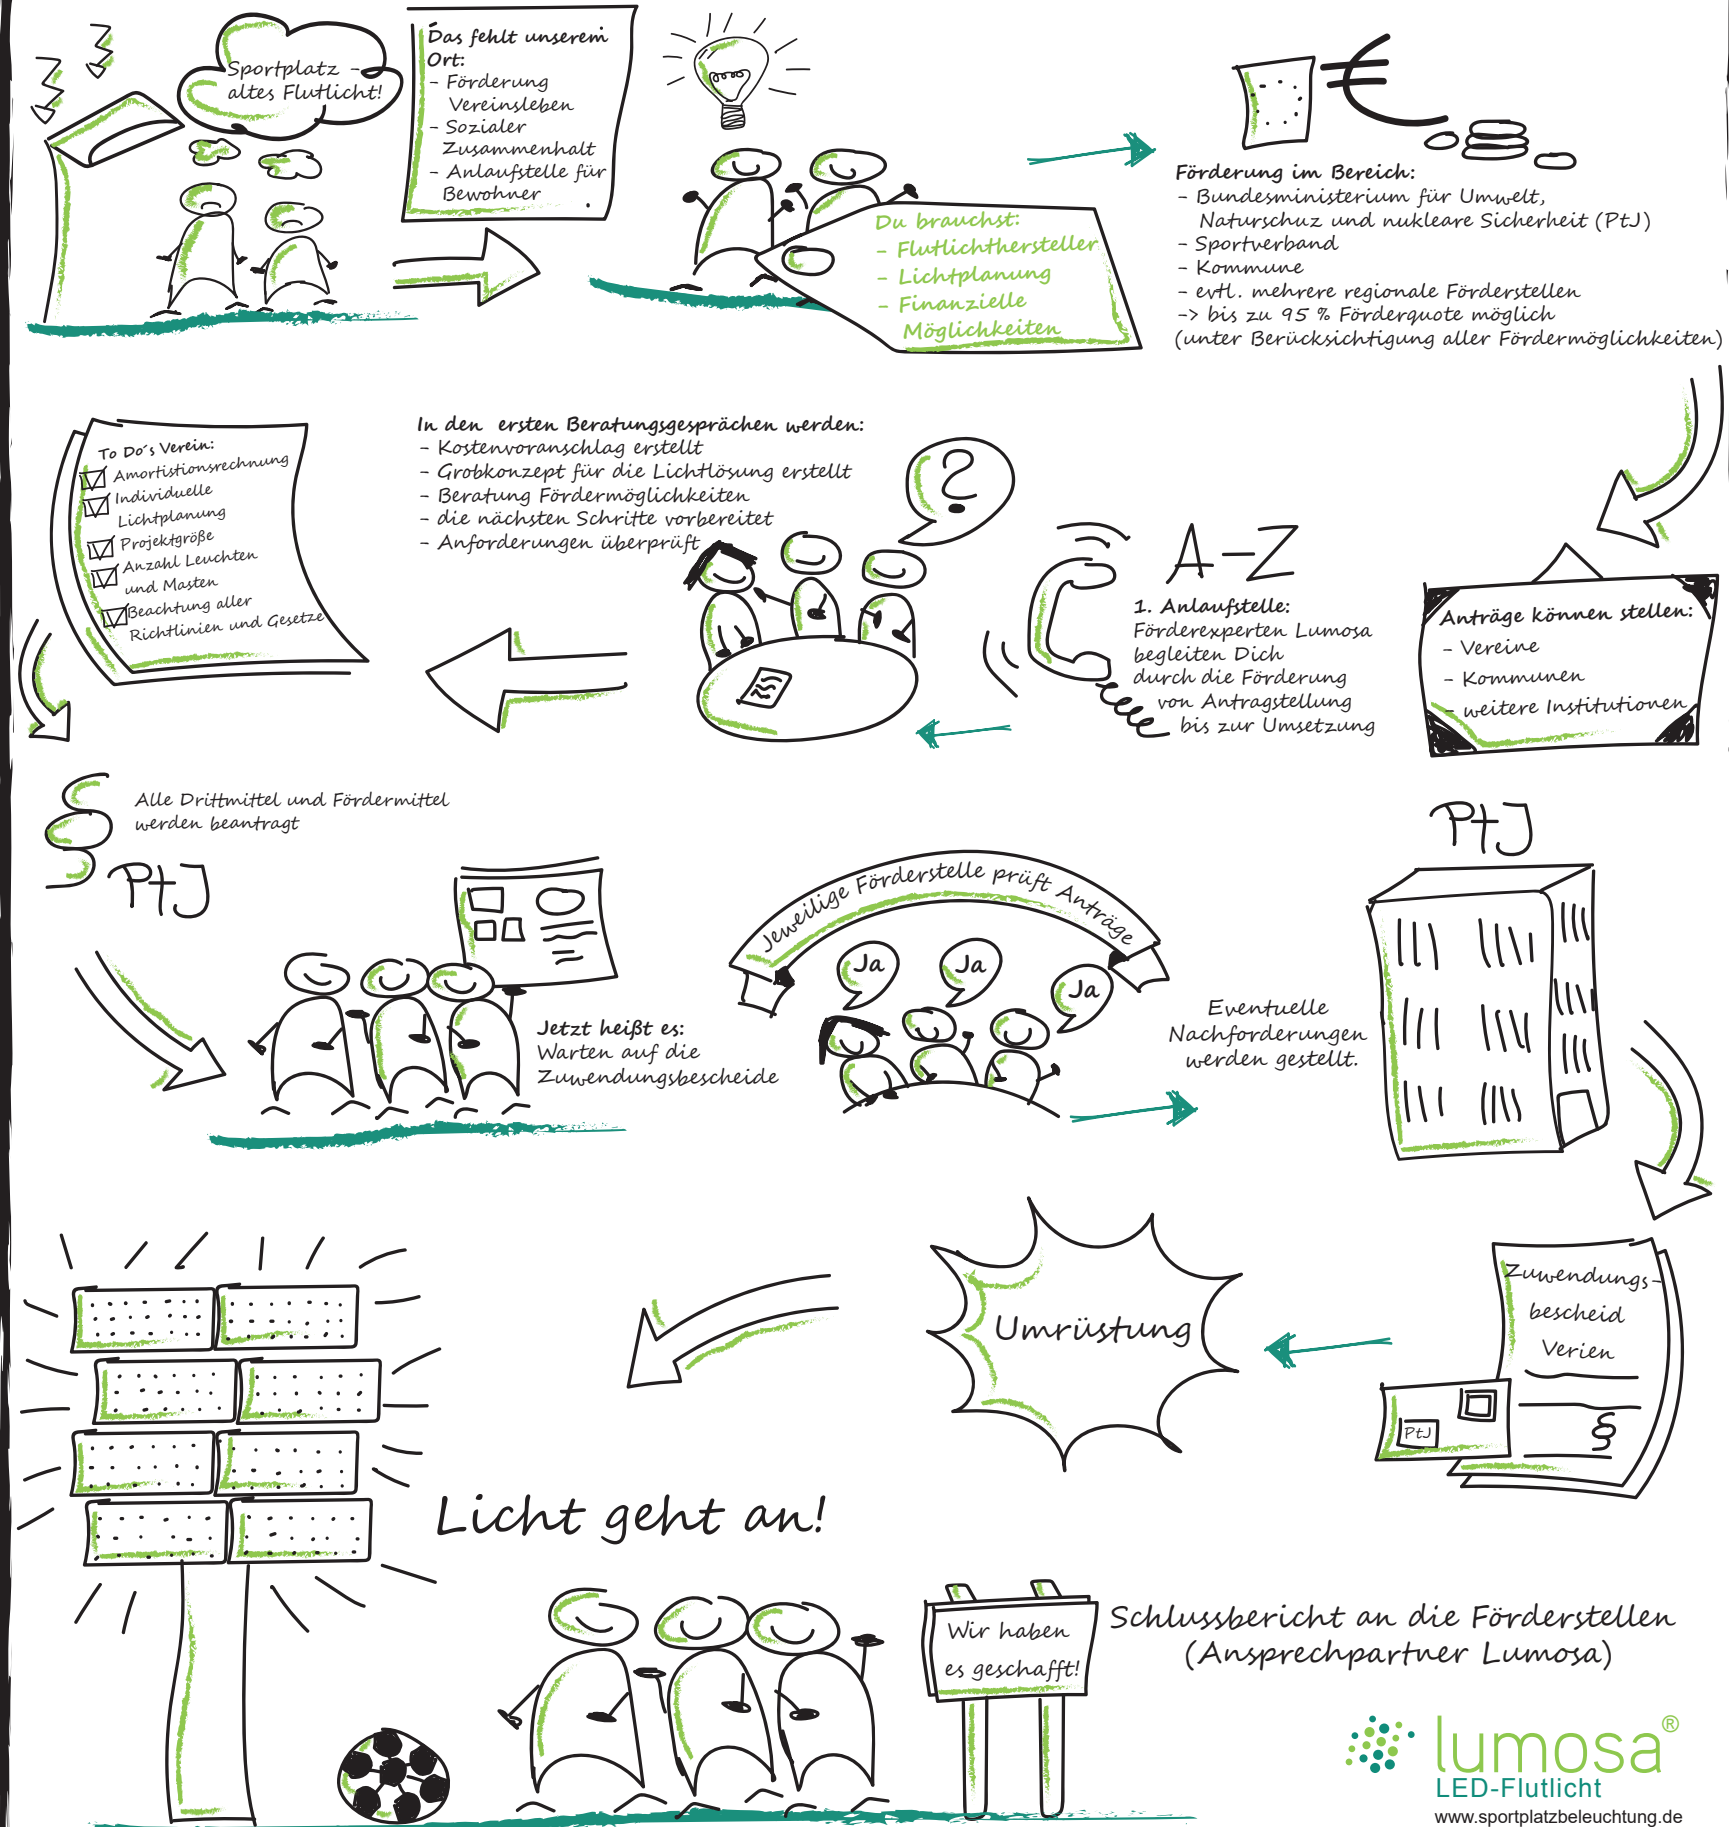 Sportplatz -
altes Flutlicht!
Das fehlt unserem
Ort:
- Förderung
Vereinsleben
- Sozialer
Zusammenhalt
- Anlaufstelle für
Bewohner
Du brauchst:
- Flutlichthersteller
- Lichtplanung
- Finanzielle
Möglichkeiten
€
Förderung im Bereich:
- Bundesministerium für Umwelt,
Naturschuz und nukleare Sicherheit (PtJ)
- Sportverband
- Kommune
- evtl. mehrere regionale Förderstellen
-> bis zu 95 % Förderquote möglich
(unter Berücksichtigung aller Fördermöglichkeiten)
Anträge können stellen:
- Vereine
- Kommunen
- weitere Institutionen
A-Z
1. Anlaufstelle:
Förderexperten Lumosa
begleiten Dich
durch die Förderung
von Antragstellung
bis zur Umsetzung
?
In den ersten Beratungsgesprächen werden:
- Kostenvoranschlag erstellt
- Grobkonzept für die Lichtlösung erstellt
- Beratung Fördermöglichkeiten
- die nächsten Schritte vorbereitet
- Anforderungen überprüft
To Do´s Verein:
Amortistionsrechnung
Individuelle
Lichtplanung
Projektgröße
Anzahl Leuchten
und Masten
Beachtung aller
Richtlinien und Gesetze
§
Alle Drittmittel und Fördermittel
werden beantragt
PtJ
Jetzt heißt es:
Warten auf die
Zuwendungsbescheide
Jeweilige Förderstelle prüft Anträge
Ja
Ja
Ja
Eventuelle
Nachforderungen
werden gestellt.
PtJ
Zuwendungs-
bescheid
Verien
§
PtJ
Umrüstung
Licht geht an!
Wir haben
es geschafft!
Schlussbericht an die Förderstellen
(Ansprechpartner Lumosa)
lumosa®
LED-Flutlicht
www.sportplatzbeleuchtung.de